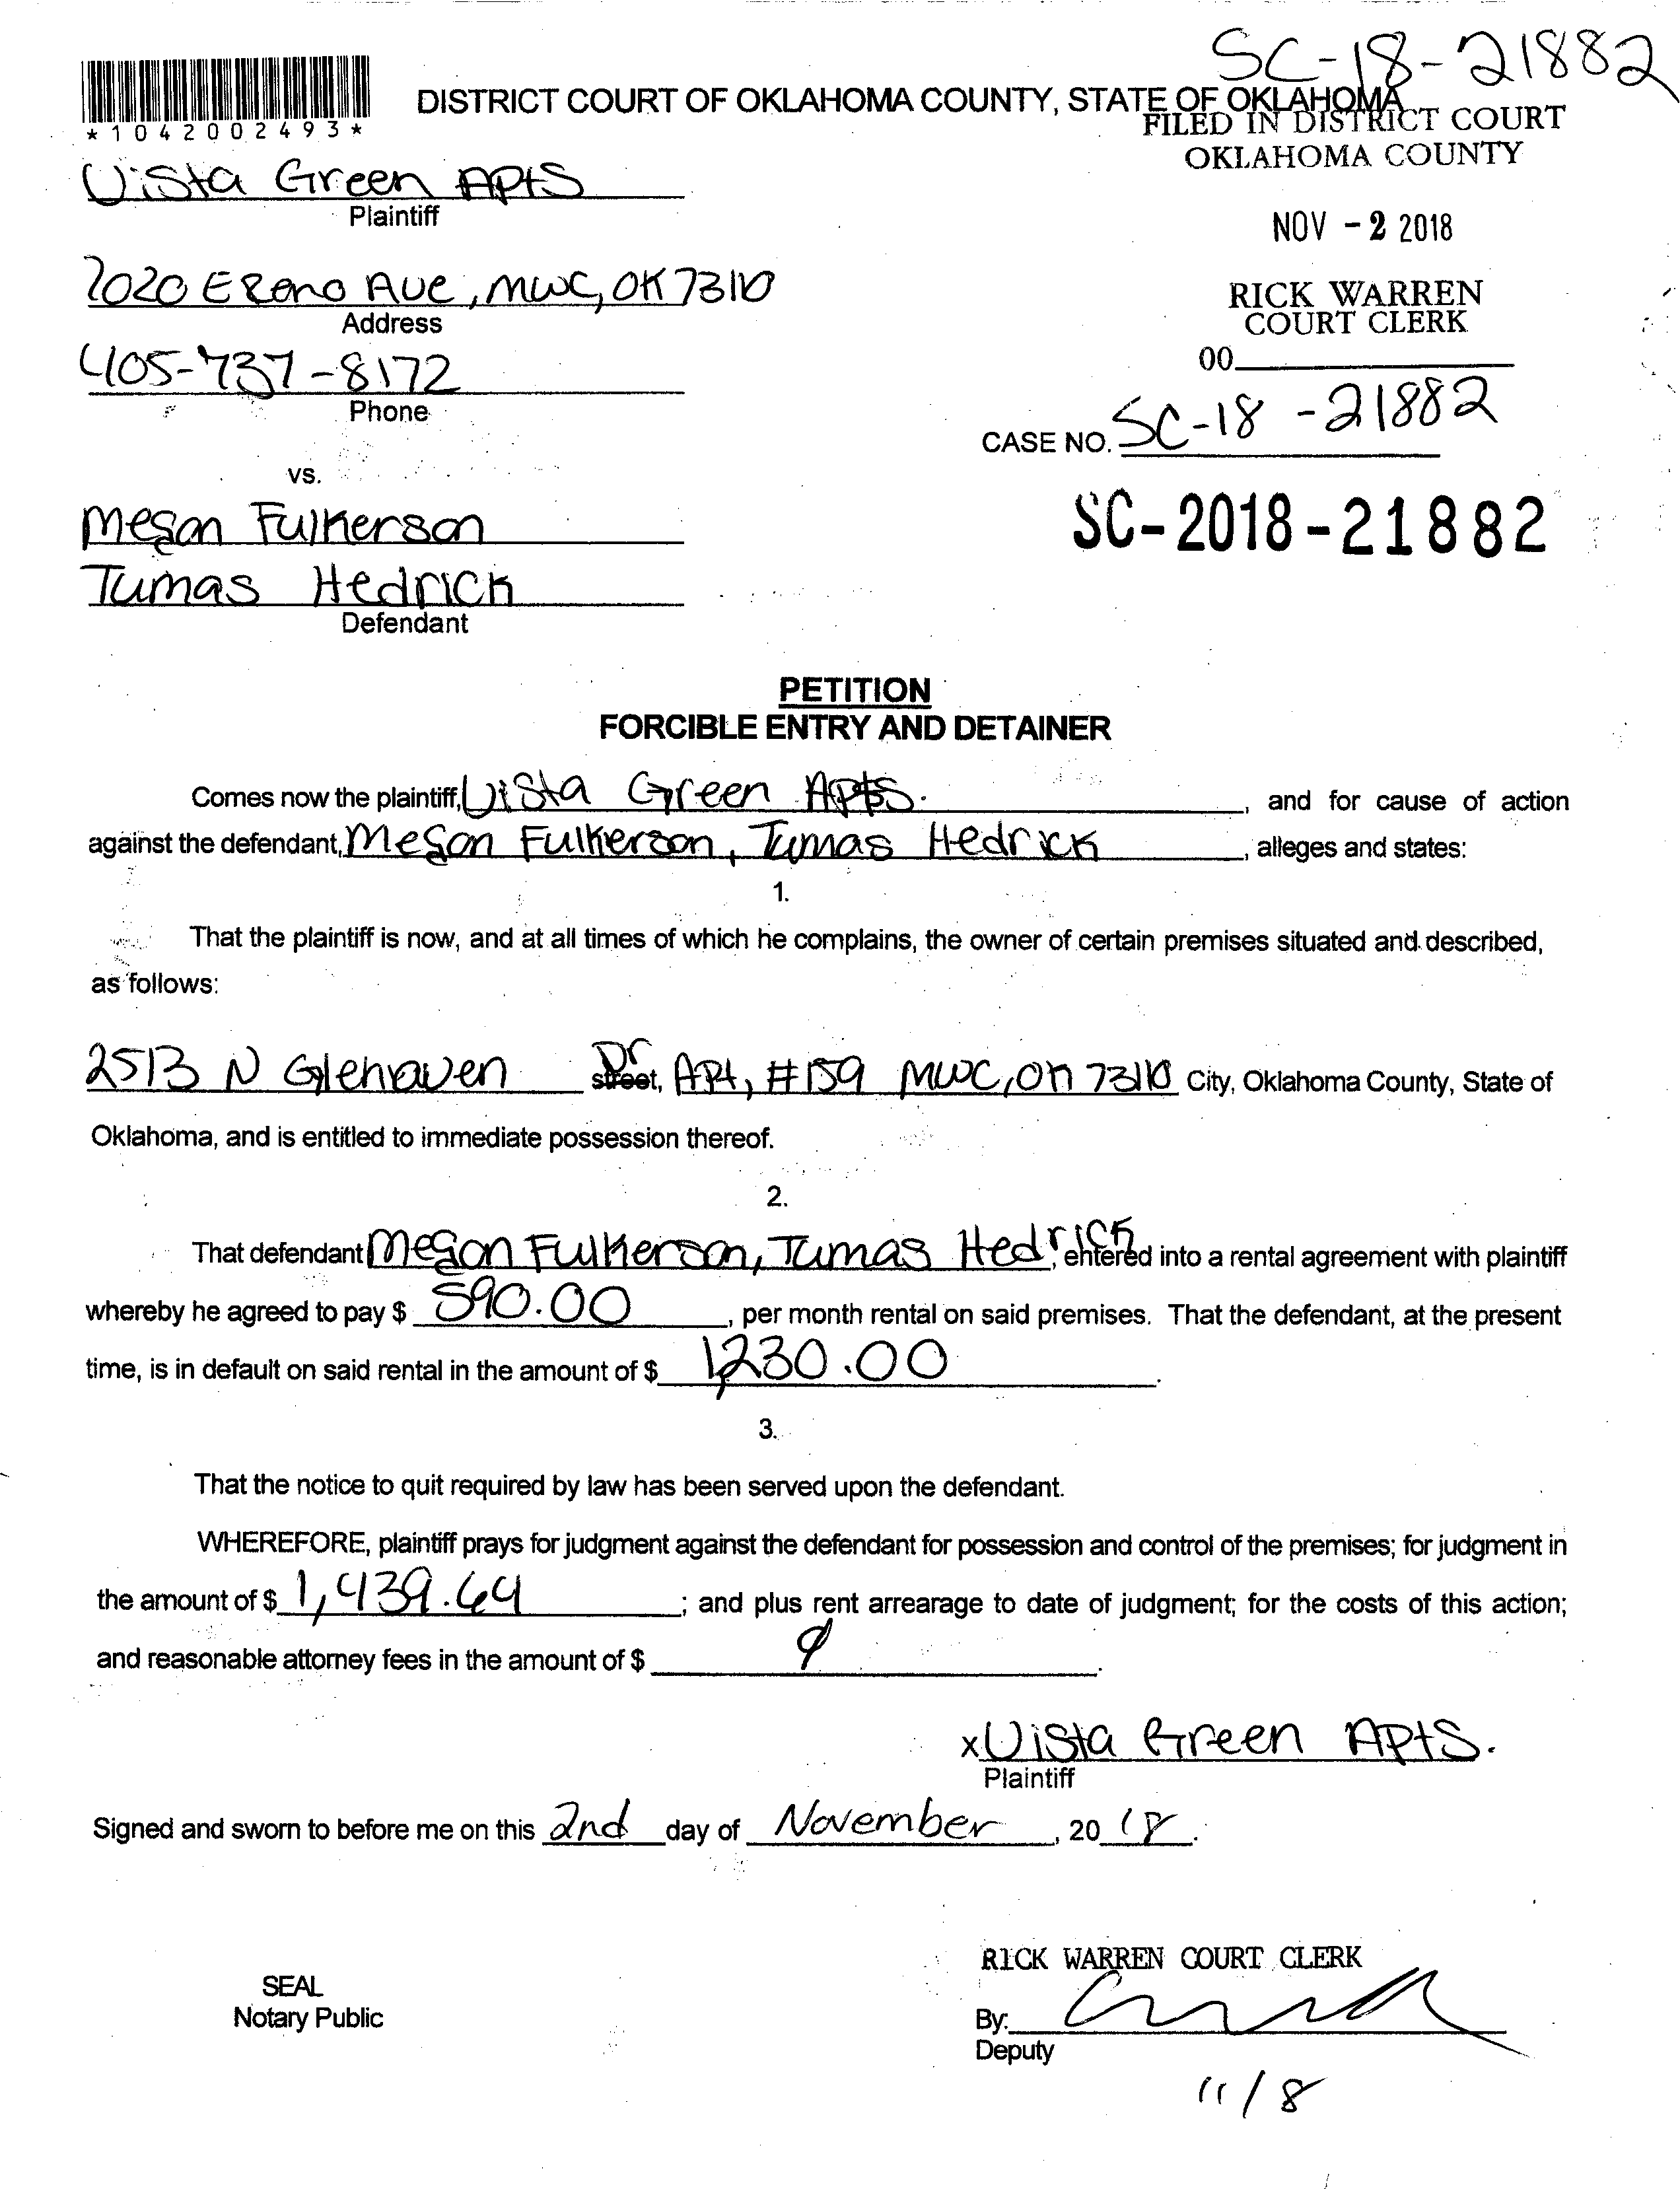 SC-18-21882
*1042002493*
DISTRICT COURT OF OKLAHOMA COUNTY, STATE OF OKLAHOMA
FILED IN DISTRICT COURT
OKLAHOMA COUNTY
Vista Green Apts
Plaintiff
NOV - 2 2018
7020 E Reno Ave, MWC, OK 73110
Address
RICK WARREN
COURT CLERK
405-737-8172
Phone
00
CASE NO. SC-18-21882
vs.
Megan Fulkerson
SC-2018-21882
Tumas Hedrick
Defendant
PETITION
FORCIBLE ENTRY AND DETAINER
Comes now the plaintiff, Vista Green Apts. , and for cause of action
against the defendant, Megan Fulkerson, Tumas Hedrick , alleges and states:
1.
That the plaintiff is now, and at all times of which he complains, the owner of certain premises situated and described,
as follows:
2513 N Glenhaven Dr street, Apt, #159 MWC, OK 73110 City, Oklahoma County, State of
Oklahoma, and is entitled to immediate possession thereof.
2.
That defendant Megan Fulkerson, Tumas Hedrick, entered into a rental agreement with plaintiff
whereby he agreed to pay $ 590.00 , per month rental on said premises. That the defendant, at the present
time, is in default on said rental in the amount of $ 1,230.00 .
3.
That the notice to quit required by law has been served upon the defendant.
WHEREFORE, plaintiff prays for judgment against the defendant for possession and control of the premises; for judgment in
the amount of $ 1,439.64 ; and plus rent arrearage to date of judgment; for the costs of this action;
and reasonable attorney fees in the amount of $ .
x Vista Green Apts.
Plaintiff
Signed and sworn to before me on this 2nd day of November , 20 18 .
RICK WARREN COURT CLERK
SEAL
Notary Public
By:
Deputy
11/8